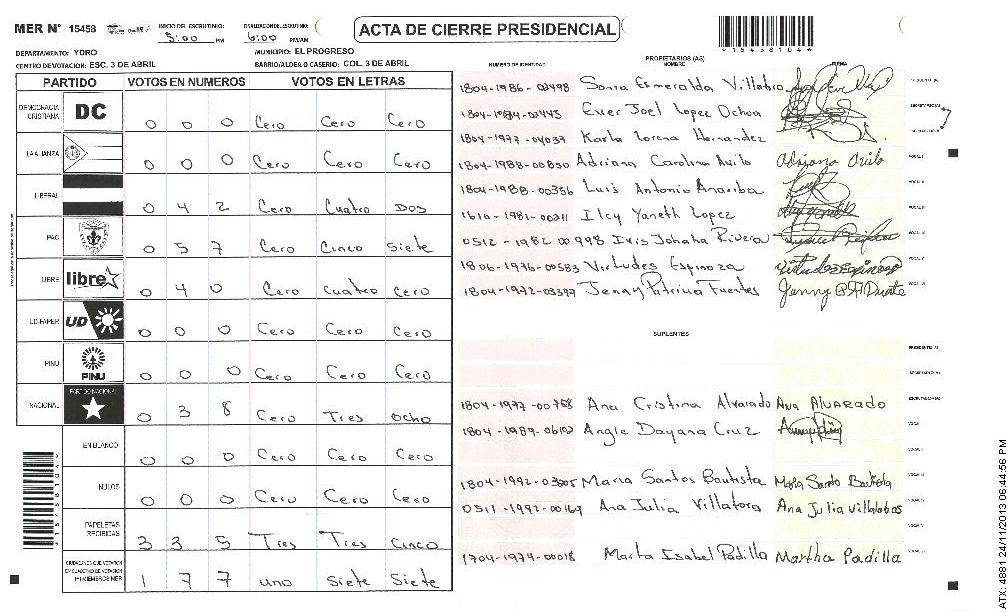 MER N° 15458
INICIO DEL ESCRUTINIO: 5:00 PM
FINALIZACION DEL ESCRUTINIO: 6:00 PM/AM
ACTA DE CIERRE PRESIDENCIAL
DEPARTAMENTO: YORO
MUNICIPIO: EL PROGRESO
CENTRO DE VOTACION: ESC. 3 DE ABRIL
BARRIO/ALDEA O CASERIO: COL. 3 DE ABRIL
PARTIDO VOTOS EN NUMEROS VOTOS EN LETRAS
DEMOCRACIA CRISTIANA DC 0 0 0 Cero Cero Cero
LA ALIANZA 0 0 0 Cero Cero Cero
LIBERAL 0 4 2 Cero Cuatro Dos
PAC 0 5 7 Cero Cinco Siete
LIBRE libre 0 4 0 Cero cuatro cero
UD-FAPER UD 0 0 0 Cero Cero Cero
PINU PINU 0 0 0 Cero Cero Cero
NACIONAL PARTIDO NACIONAL 0 3 8 Cero Tres ocho
EN BLANCO 0 0 0 Cero Cero Cero
NULOS 0 0 0 Cero Cero Cero
PAPELETAS RECIBIDAS 3 3 5 Tres Tres Cinco
1 7 7 uno siete Siete
NUMERO DE IDENTIDAD
PROPIETARIOS (AS)
NOMBRE
FIRMA
1804-1986-03498 Sonia Esmeralda Villatro
Ever Joel Lopez Ochoa
1804-1977-04037 Karla Lorena Hernandez
1804-1988-00830 Adriana Carolina Avila
1804-1988-00356 Luis Antonio Anariba
1610-1981-00211 Ilcy Yaneth Lopez
0512-1982 00998 Iris Johana Rivera
1806-1976-00583 Virtudes Espinoza
1804-1972-03397 Jenny Patricia Fuentes
SUPLENTES
1804-1977-00758 Ana Cristina Alvarado Ana Alvarado
1804-1987-06102 Angie Dayana Cruz
1804-1992-03005 Maria Santos Bautista Maria Santo Bautista
0511-1992-00169 Ana Julia Villatoro Ana Julia Villalobos
1704-1974-00018 Marta Isabel Padilla Martha Padilla
ATX: 4881 24/11/2013 06:44:56 PM